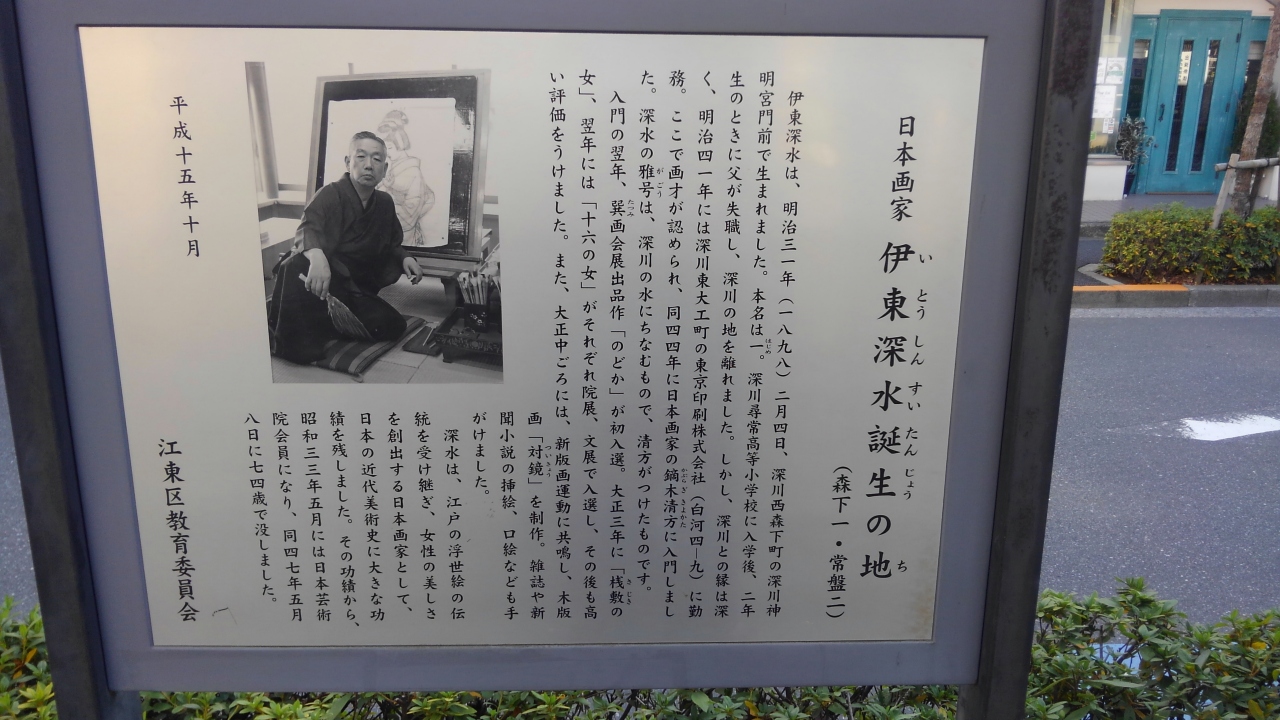 日本画家 伊東深水誕生の地
(森下一・常盤二)
伊東深水は、明治三一年(一八九八)二月四日、深川西森下町の深川神
明宮門前で生まれました。本名は一。深川尋常高等小学校に入学後、二年
生のときに父が失職し、深川の地を離れました。しかし、深川との縁は深
く、明治四一年には深川東大工町の東京印刷株式会社(白河四―九)に勤
務。ここで画才が認められ、同四四年に日本画家の鏑木清方に入門しまし
た。深水の雅号は、深川の水にちなむもので、清方がつけたものです。
入門の翌年、巽画会展出品作「のどか」が初入選。大正三年に「桟敷の
女」、翌年には「十六の女」がそれぞれ院展、文展で入選し、その後も高
い評価をうけました。また、大正中ごろには、新版画運動に共鳴し、木版
画「対鏡」を制作。雑誌や新
聞小説の挿絵、口絵なども手
がけました。
深水は、江戸の浮世絵の伝
統を受け継ぎ、女性の美しさ
を創出する日本画家として、
日本の近代美術史に大きな功
績を残しました。その功績から、
昭和三三年五月には日本芸術
院会員になり、同四七年五月
八日に七四歳で没しました。
平成十五年十月
江東区教育委員会